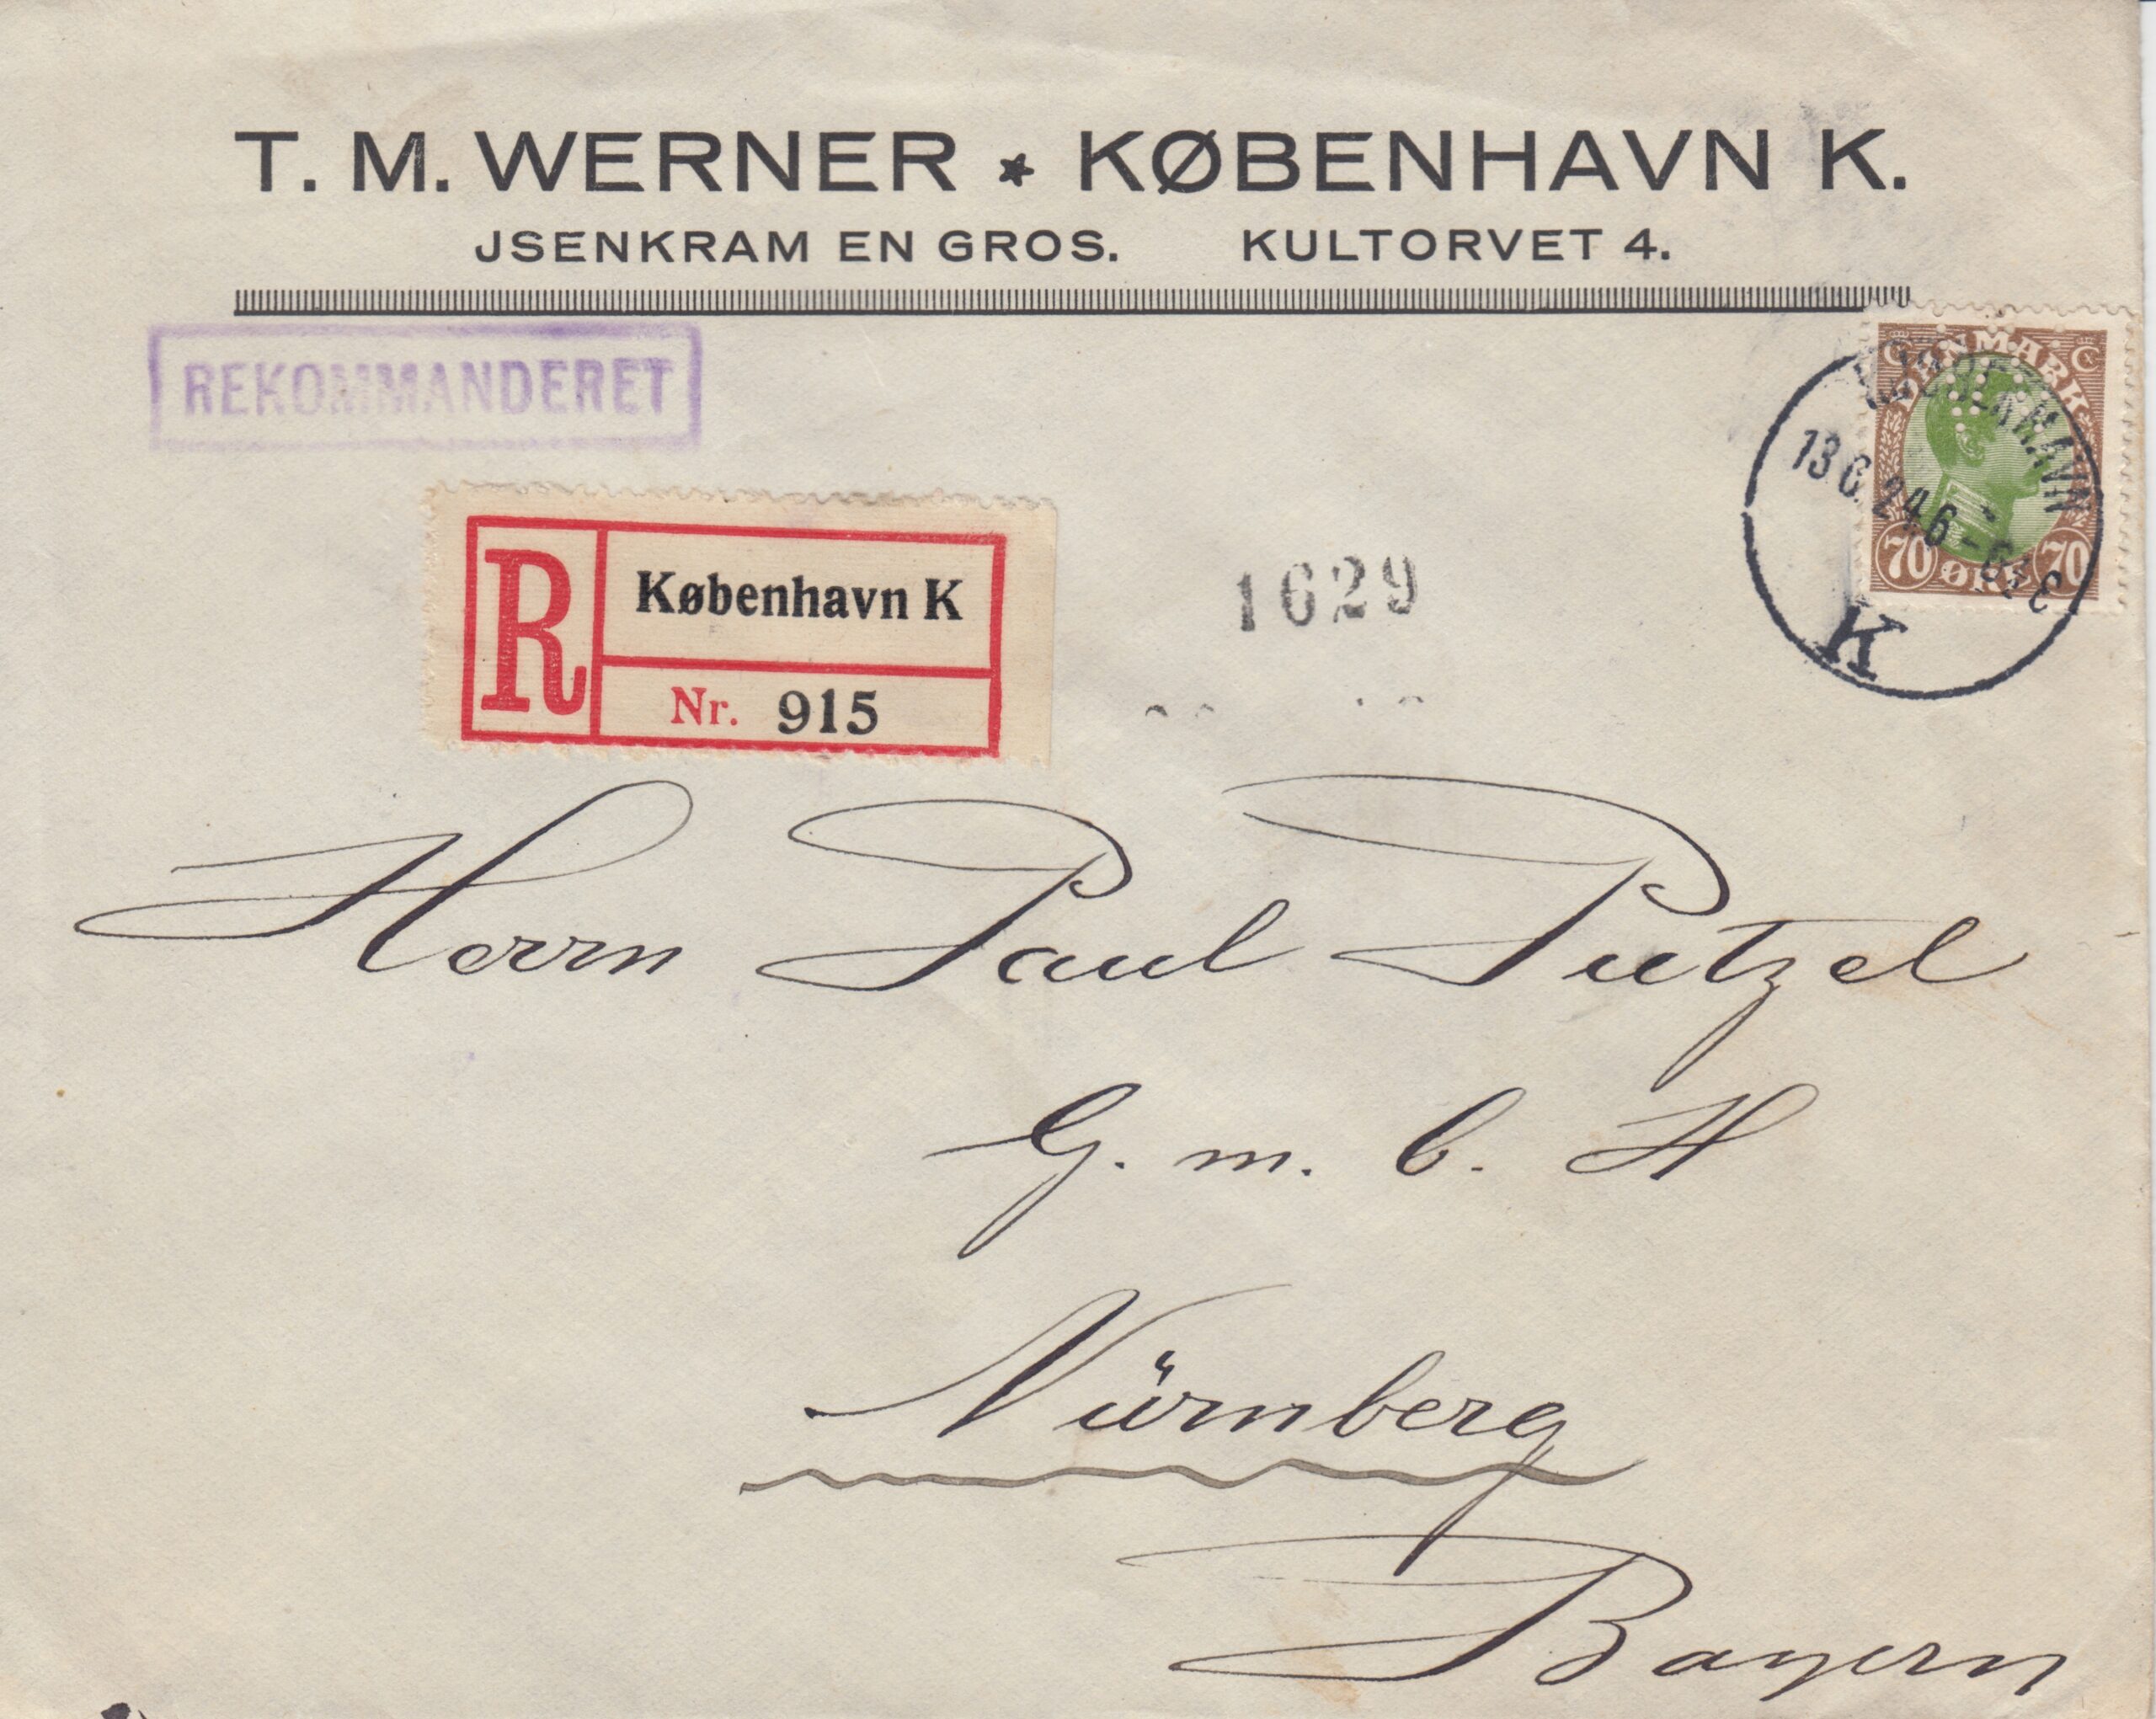 T. M. WERNER * KØBENHAVN K.
JSENKRAM EN GROS. KULTORVET 4.
REKOMMANDERET
DANMARK
70 ØRE 70
KJØBENHAVN
13 6. 24. 6 -
K
R
København K
Nr. 915
1629
Herrn Paul Putzel
G. m. b. H
Nürnberg
Bayern